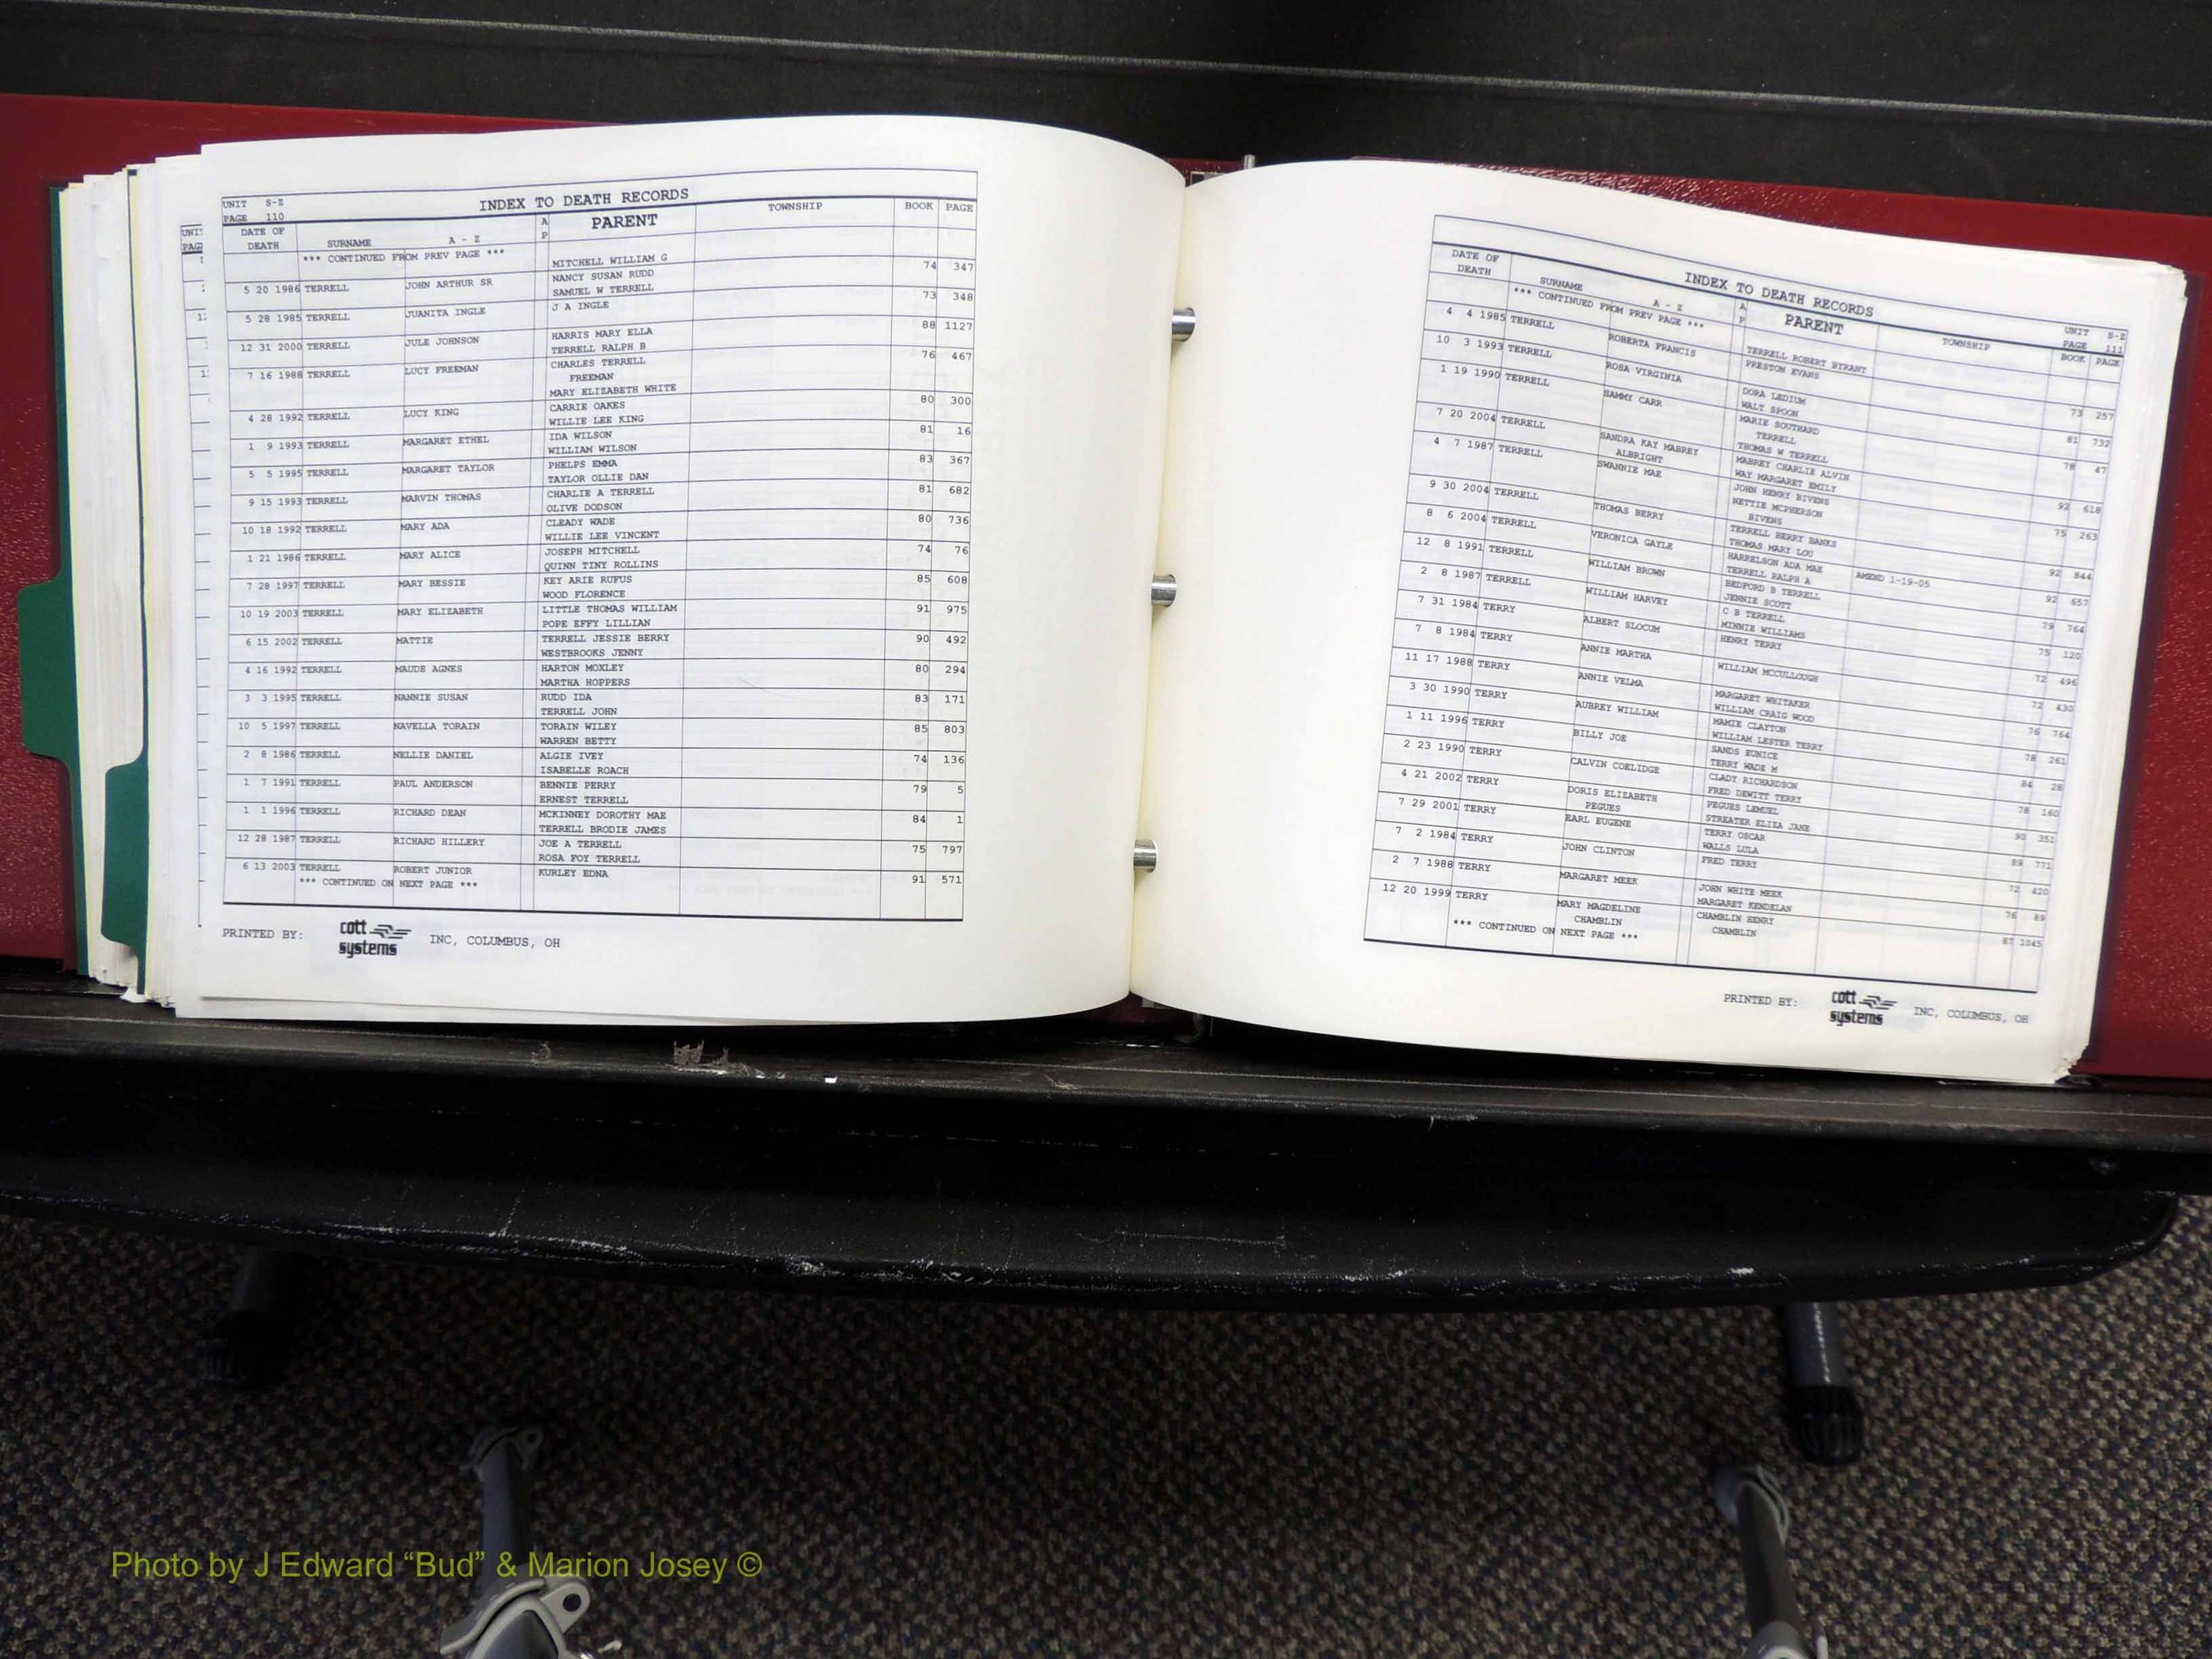 UNIT S-Z INDEX TO DEATH RECORDS
PAGE 110
DATE OF DEATH SURNAME A - Z A P PARENT TOWNSHIP BOOK PAGE
*** CONTINUED FROM PREV PAGE *** MITCHELL WILLIAM G
5 20 1986 TERRELL JOHN ARTHUR SR NANCY SUSAN RUDD 74 347
SAMUEL W TERRELL
5 28 1985 TERRELL JUANITA INGLE J A INGLE 73 348
12 31 2000 TERRELL JULE JOHNSON HARRIS MARY ELLA 88 1127
TERRELL RALPH B
7 16 1988 TERRELL LUCY FREEMAN CHARLES TERRELL 76 467
FREEMAN
MARY ELIZABETH WHITE
4 28 1992 TERRELL LUCY KING CARRIE OAKES 80 300
WILLIE LEE KING
1 9 1993 TERRELL MARGARET ETHEL IDA WILSON 81 16
WILLIAM WILSON
5 5 1995 TERRELL MARGARET TAYLOR PHELPS EMMA 83 367
TAYLOR OLLIE DAN
9 15 1993 TERRELL MARVIN THOMAS CHARLIE A TERRELL 81 682
OLIVE DODSON
10 18 1992 TERRELL MARY ADA CLEADY WADE 80 736
WILLIE LEE VINCENT
1 21 1986 TERRELL MARY ALICE JOSEPH MITCHELL 74 76
QUINN TINY ROLLINS
7 28 1997 TERRELL MARY BESSIE KEY ARIE RUFUS 85 608
WOOD FLORENCE
10 19 2003 TERRELL MARY ELIZABETH LITTLE THOMAS WILLIAM 91 975
POPE EFFY LILLIAN
6 15 2002 TERRELL MATTIE TERRELL JESSIE BERRY 90 492
WESTBROOKS JENNY
4 16 1992 TERRELL MAUDE AGNES HARTON MOXLEY 80 294
MARTHA HOPPERS
3 3 1995 TERRELL NANNIE SUSAN RUDD IDA 83 171
TERRELL JOHN
10 5 1997 TERRELL NAVELLA TORAIN TORAIN WILEY 85 803
WARREN BETTY
2 8 1986 TERRELL NELLIE DANIEL ALGIE IVEY 74 136
ISABELLE ROACH
1 7 1991 TERRELL PAUL ANDERSON BENNIE PERRY 79 5
ERNEST TERRELL
1 1 1996 TERRELL RICHARD DEAN MCKINNEY DOROTHY MAE 84 1
TERRELL BRODIE JAMES
12 28 1987 TERRELL RICHARD HILLERY JOE A TERRELL 75 797
ROSA FOY TERRELL
6 13 2003 TERRELL ROBERT JUNIOR KURLEY EDNA 91 571
*** CONTINUED ON NEXT PAGE ***
PRINTED BY: cott systems INC, COLUMBUS, OH
INDEX TO DEATH RECORDS UNIT S-Z
PAGE 111
DATE OF DEATH SURNAME A - Z A P PARENT TOWNSHIP BOOK PAGE
*** CONTINUED FROM PREV PAGE *** TERRELL ROBERT BYRANT
4 4 1985 TERRELL ROBERTA FRANCIS PRESTON EVANS 73 257
10 3 1993 TERRELL ROSA VIRGINIA DORA LEDIUM 81 732
WALT SPOON
1 19 1990 TERRELL SAMMY CARR MARIE SOUTHARD 78 47
TERRELL
THOMAS W TERRELL
7 20 2004 TERRELL SANDRA KAY MABREY MABREY CHARLIE ALVIN 92 618
ALBRIGHT WAY MARGARET EMILY
4 7 1987 TERRELL SWANNIE MAE JOHN HENRY BIVENS 75 263
NETTIE MCPHERSON
BIVENS
9 30 2004 TERRELL THOMAS BERRY TERRELL BERRY BANKS 92 844
THOMAS MARY LOU
8 6 2004 TERRELL VERONICA GAYLE HARRELSON ADA MAE AMEND 1-19-05 92 657
TERRELL RALPH A
12 8 1991 TERRELL WILLIAM BROWN BEDFORD B TERRELL 79 764
JENNIE SCOTT
2 8 1987 TERRELL WILLIAM HARVEY C B TERRELL 75 120
MINNIE WILLIAMS
7 31 1984 TERRY ALBERT SLOCUM HENRY TERRY 72 496
7 8 1984 TERRY ANNIE MARTHA WILLIAM MCCULLOUGH 72 430
11 17 1988 TERRY ANNIE VELMA MARGARET WHITAKER 76 764
WILLIAM CRAIG WOOD
3 30 1990 TERRY AUBREY WILLIAM MAMIE CLAYTON 78 261
WILLIAM LESTER TERRY
1 11 1996 TERRY BILLY JOE SANDS EUNICE 84 28
TERRY WADE M
2 23 1990 TERRY CALVIN COELIDGE CLADY RICHARDSON 78 160
FRED DEWITT TERRY
4 21 2002 TERRY DORIS ELIZABETH PEGUES LEMUEL 90 351
PEGUES STREATER ELIZA JANE
7 29 2001 TERRY EARL EUGENE TERRY OSCAR 89 771
WALLS LULA
7 2 1984 TERRY JOHN CLINTON FRED TERRY 72 420
2 7 1988 TERRY MARGARET MEEK JOHN WHITE MEEK 76 89
MARGARET KENDELAN
12 20 1999 TERRY MARY MAGDELINE CHAMBLIN HENRY 87 1045
CHAMBLIN CHAMBLIN
*** CONTINUED ON NEXT PAGE ***
PRINTED BY: cott systems INC, COLUMBUS, OH
Photo by J Edward “Bud” & Marion Josey ©